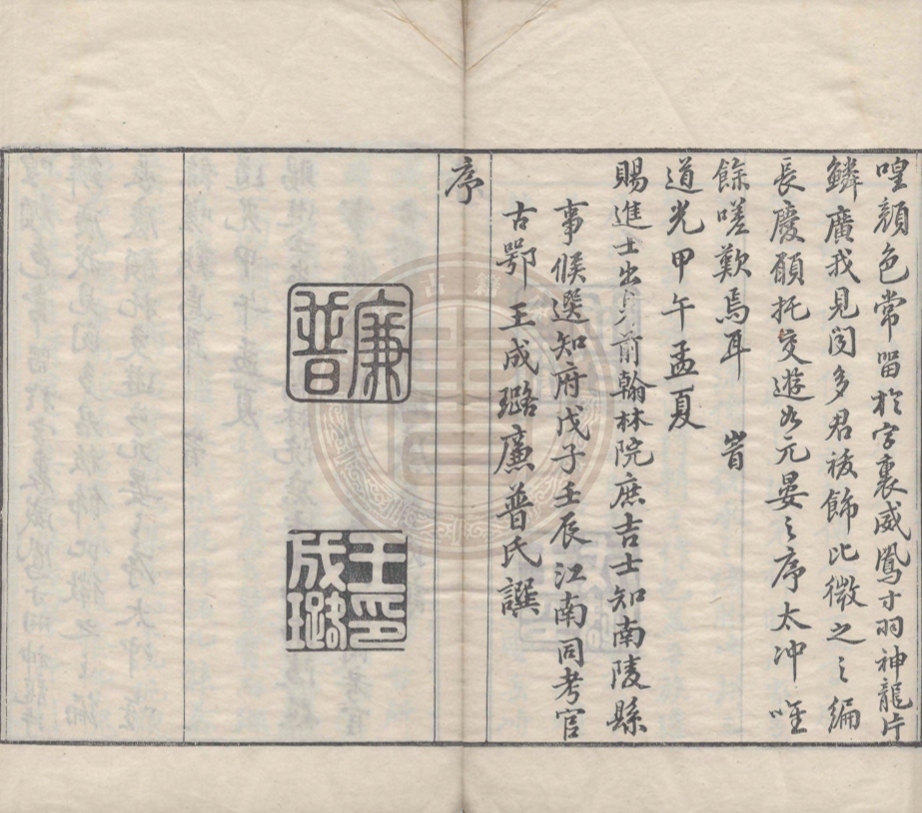 喤顏色常留於字裏威鳳寸羽神龍片
鱗廣我見聞多君祓飾比微之之編
長慶願托交遊如元晏之序太冲唯
餘嗟歎焉耳　時
道光甲午孟夏
賜進士出身前翰林院庶吉士知南陵縣
事候選知府戊子壬辰江南同考官
古鄂王成璐廉普氏譔
廉普
王印成璐
序